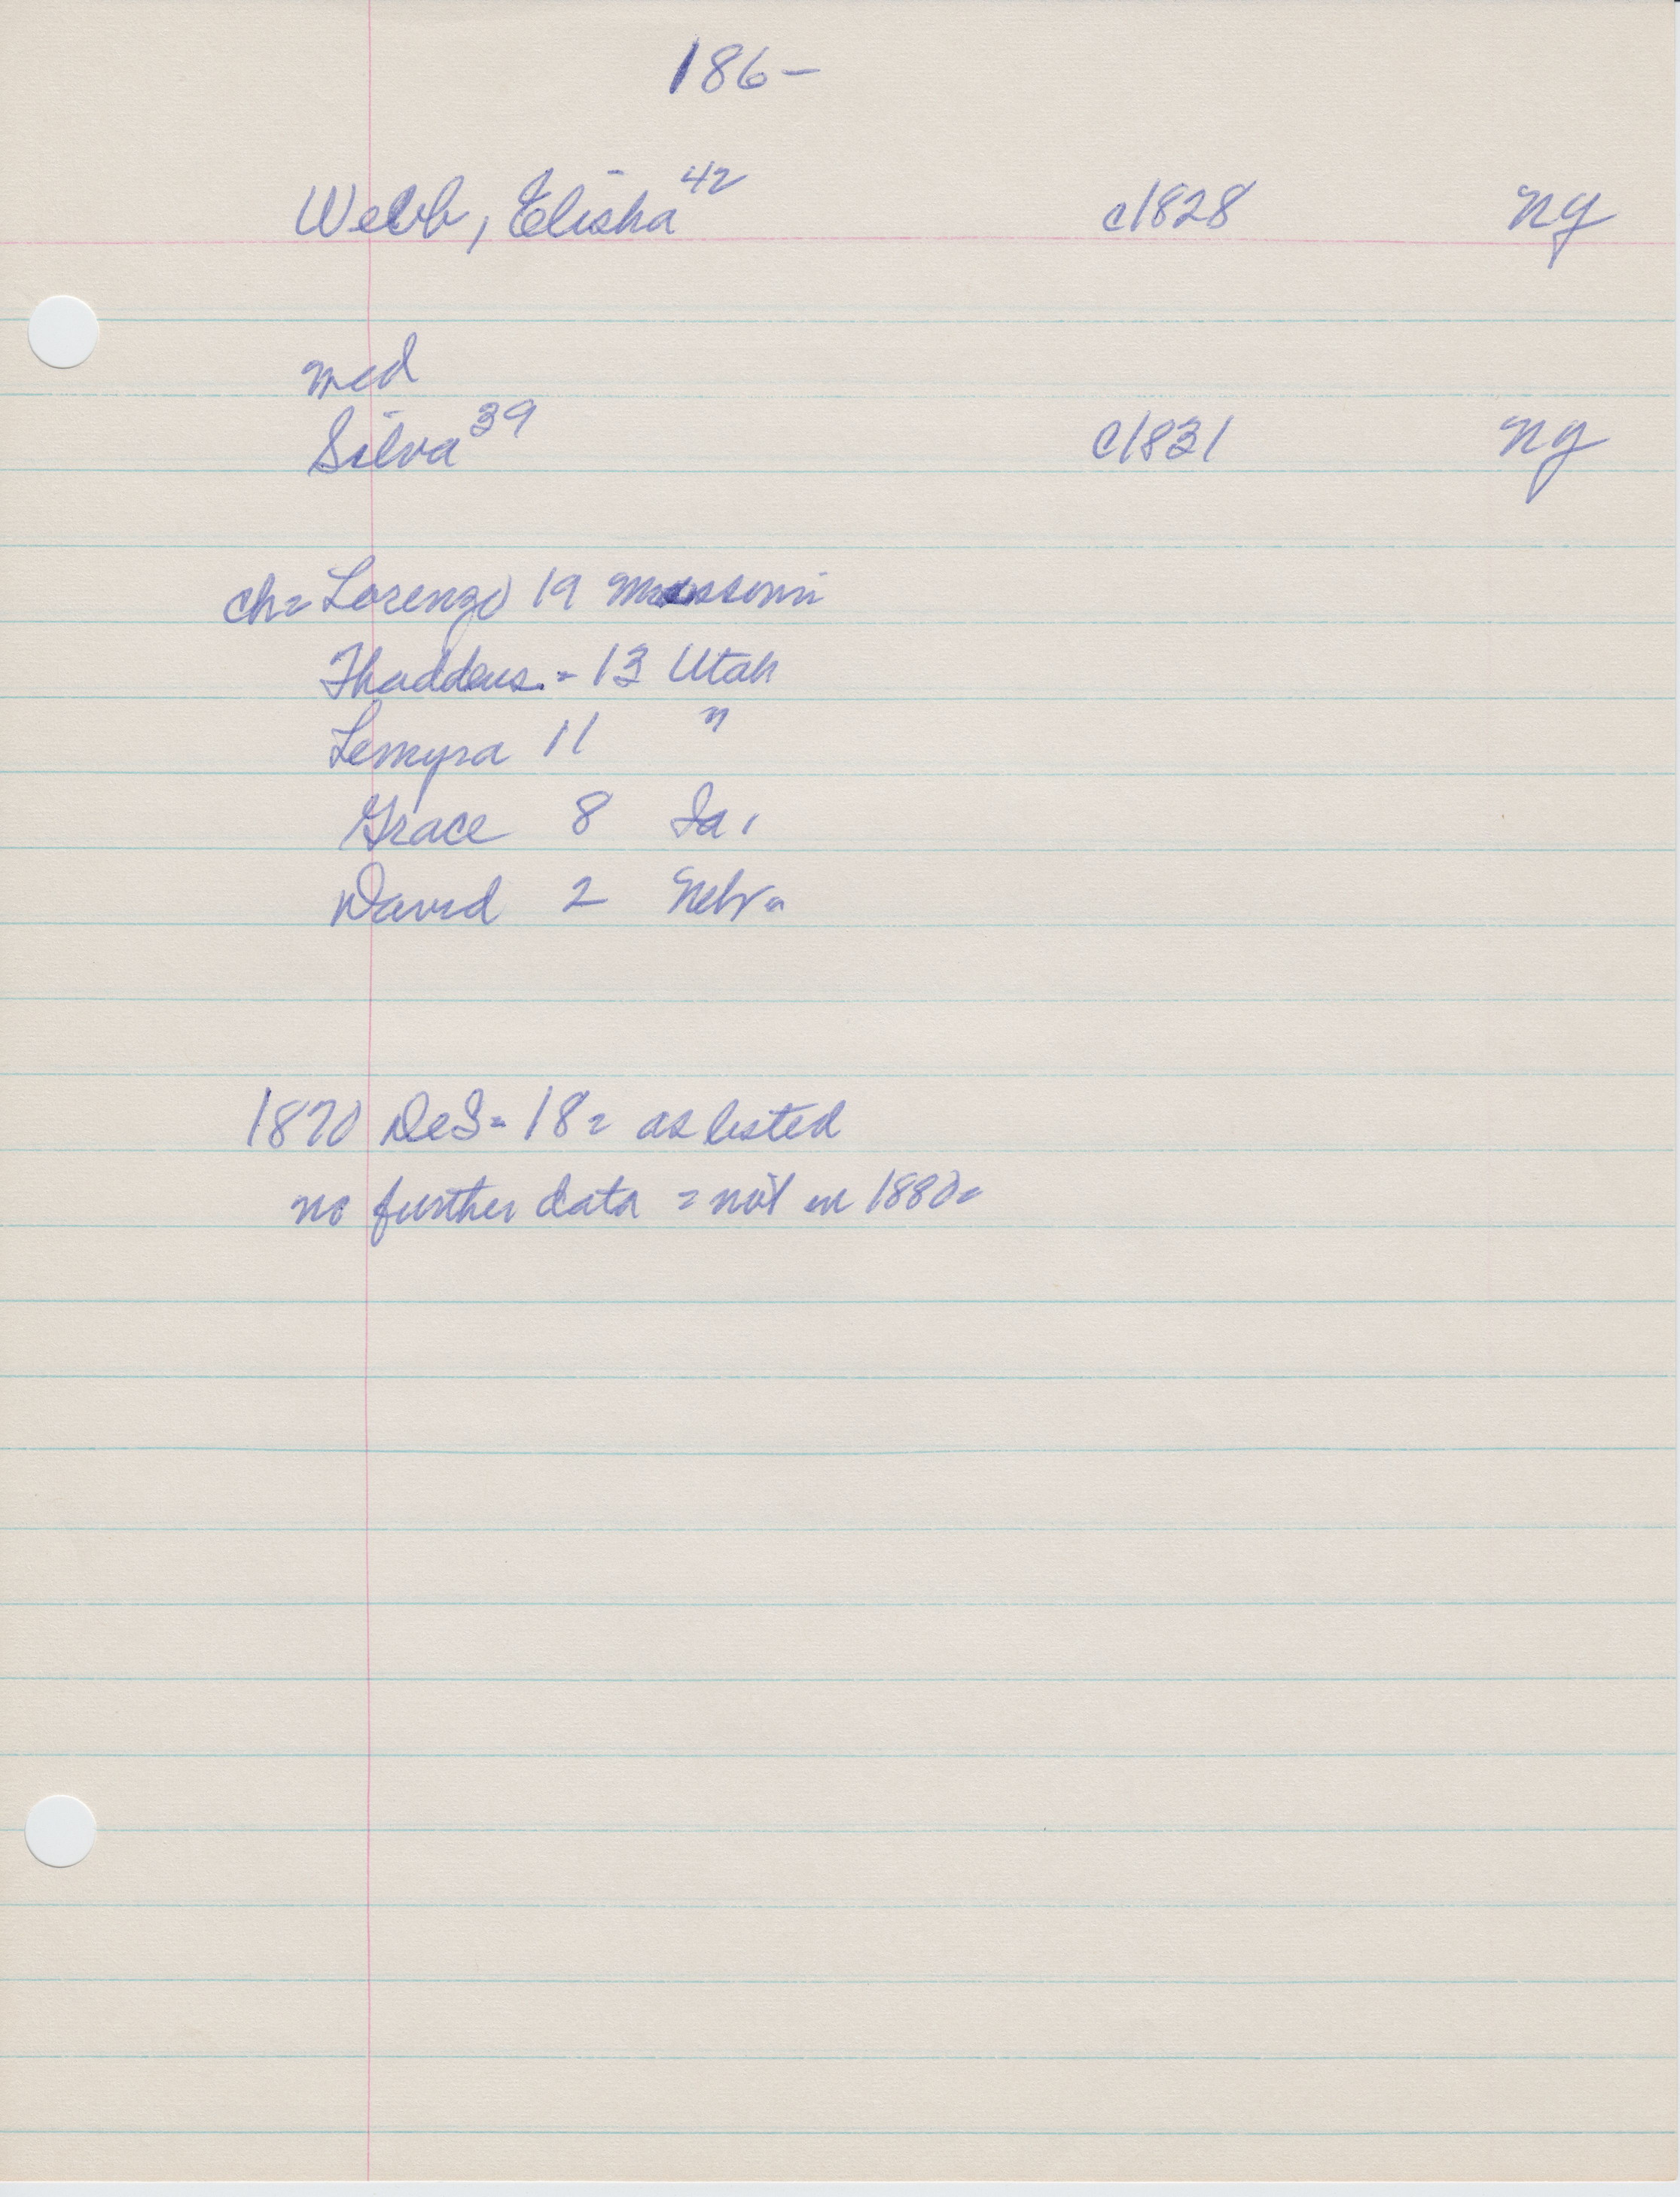 186-
Webb, Elisha 42 c1828 NY
med
Silva 39 c1831 NY
ch= Lorenzo 19 Missouri
Thaddeus. - 13 Utah
Lemyra 11 "
Grace 8 Ia.
David 2 Nebr.
1870 DeS- 18= as listed
no further data = not in 1880=